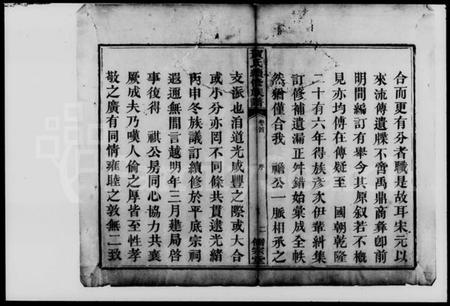 合而更有分者職是故耳宋元以
來流傳遺牒不啻禹鼎商彝卽前
明間編訂有舉今其原叙若不概
見亦均傳在傳疑至　國朝乾隆
二十有六年得族彥次伊華緝集
訂修補遺漏正舛錯始彙成全帙
然猶僅合我　瞻公一脈相承之
支派也洎道光咸豐之際或大合
或小分亦罔不同條共貫逮光緒
丙申冬族議訂續修於平底宗祠
遐邇無閒言越明年三月建局啓
事復得　祺公房同心協力共襄
厥成夫乃嘆人倫之厚皆至性孝
敬之廣有同情雍睦之敦無二致
氏續修族譜
卷首
序
二